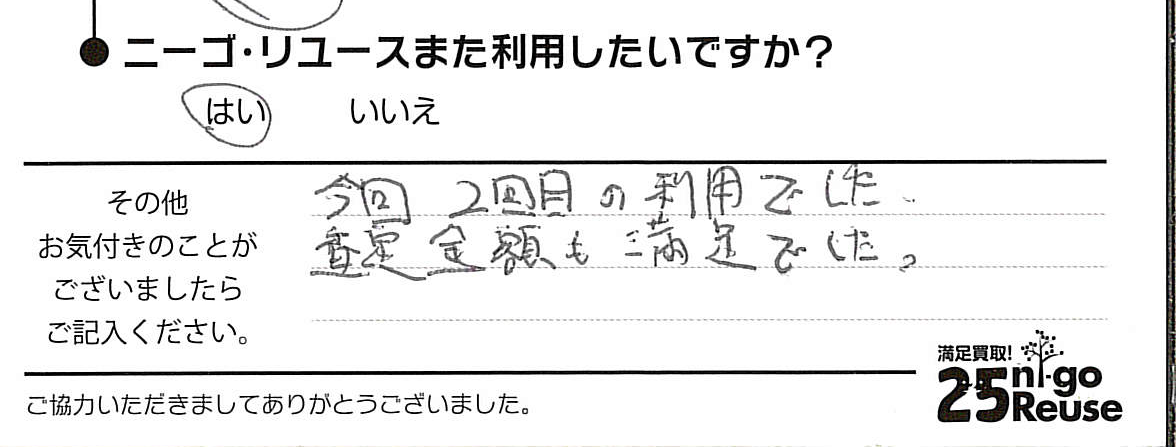 ニーゴ・リユースまた利用したいですか?
はい いいえ
その他
お気付きのことが
ございましたら
ご記入ください。
今回 2回目の利用でした。
査定金額も満足でした。
満足買取!
25 ni-go
Reuse
ご協力いただきましてありがとうございました。